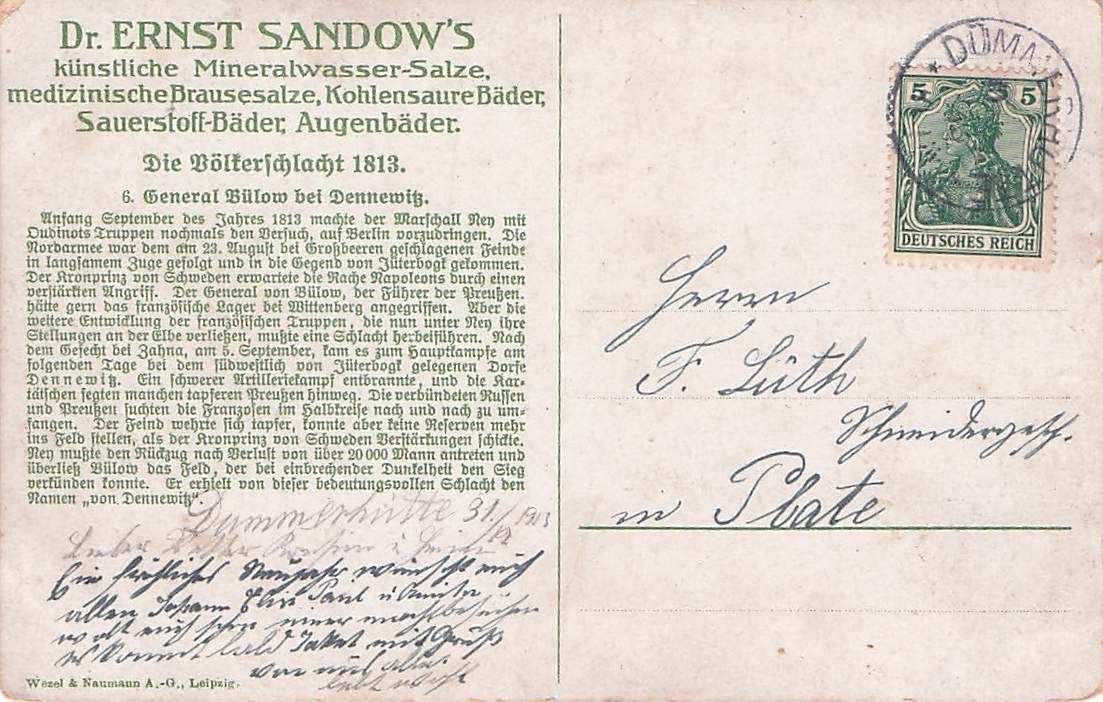 Dr. ERNST SANDOW'S
künstliche Mineralwasser-Salze,
medizinische Brausesalze, Kohlensaure Bäder,
Sauerstoff-Bäder, Augenbäder.
Die Völkerschlacht 1813.
6. General Bülow bei Dennewitz.
Anfang September des Jahres 1813 machte der Marschall Ney mit
Oudinots Truppen nochmals den Versuch, auf Berlin vorzudringen. Die
Nordarmee war dem am 23. August bei Großbeeren geschlagenen Feinde
in langsamem Zuge gefolgt und in die Gegend von Jüterbogk gekommen.
Der Kronprinz von Schweden erwartete die Rache Napoleons durch einen
verstärkten Angriff. Der General von Bülow, der Führer der Preußen.
hätte gern das französische Lager bei Wittenberg angegriffen. Aber die
weitere Entwicklung der französischen Truppen, die nun unter Ney ihre
Stellungen an der Elbe verließen, mußte eine Schlacht herbeiführen. Nach
dem Gefecht bei Zahna, am 5. September, kam es zum Hauptkampfe am
folgenden Tage bei dem südwestlich von Jüterbogk gelegenen Dorfe
Dennewitz. Ein schwerer Artilleriekampf entbrannte, und die Kar-
tätschen fegten manchen tapferen Preußen hinweg. Die verbündeten Russen
und Preußen suchten die Franzosen im Halbkreise nach und nach zu um-
fangen. Der Feind wehrte sich tapfer, konnte aber keine Reserven mehr
ins Feld stellen, als der Kronprinz von Schweden Verstärkungen schickte.
Ney mußte den Rückzug nach Verlust von über 20000 Mann antreten und
überließ Bülow das Feld, der bei einbrechender Dunkelheit den Sieg
verkünden konnte. Er erhielt von dieser bedeutungsvollen Schlacht den
Namen „von Dennewitz“.
Dummerhütte 31/12 1913
Lieber
Ein fröhliches Neujahr wünscht euch
allen Johann Paul u
von uns allen
lebt wohl
Wezel & Naumann A.-G., Leipzig.
5 5
DEUTSCHES REICH
Herrn
F. Lüth
Schneidergesch.
in Plate